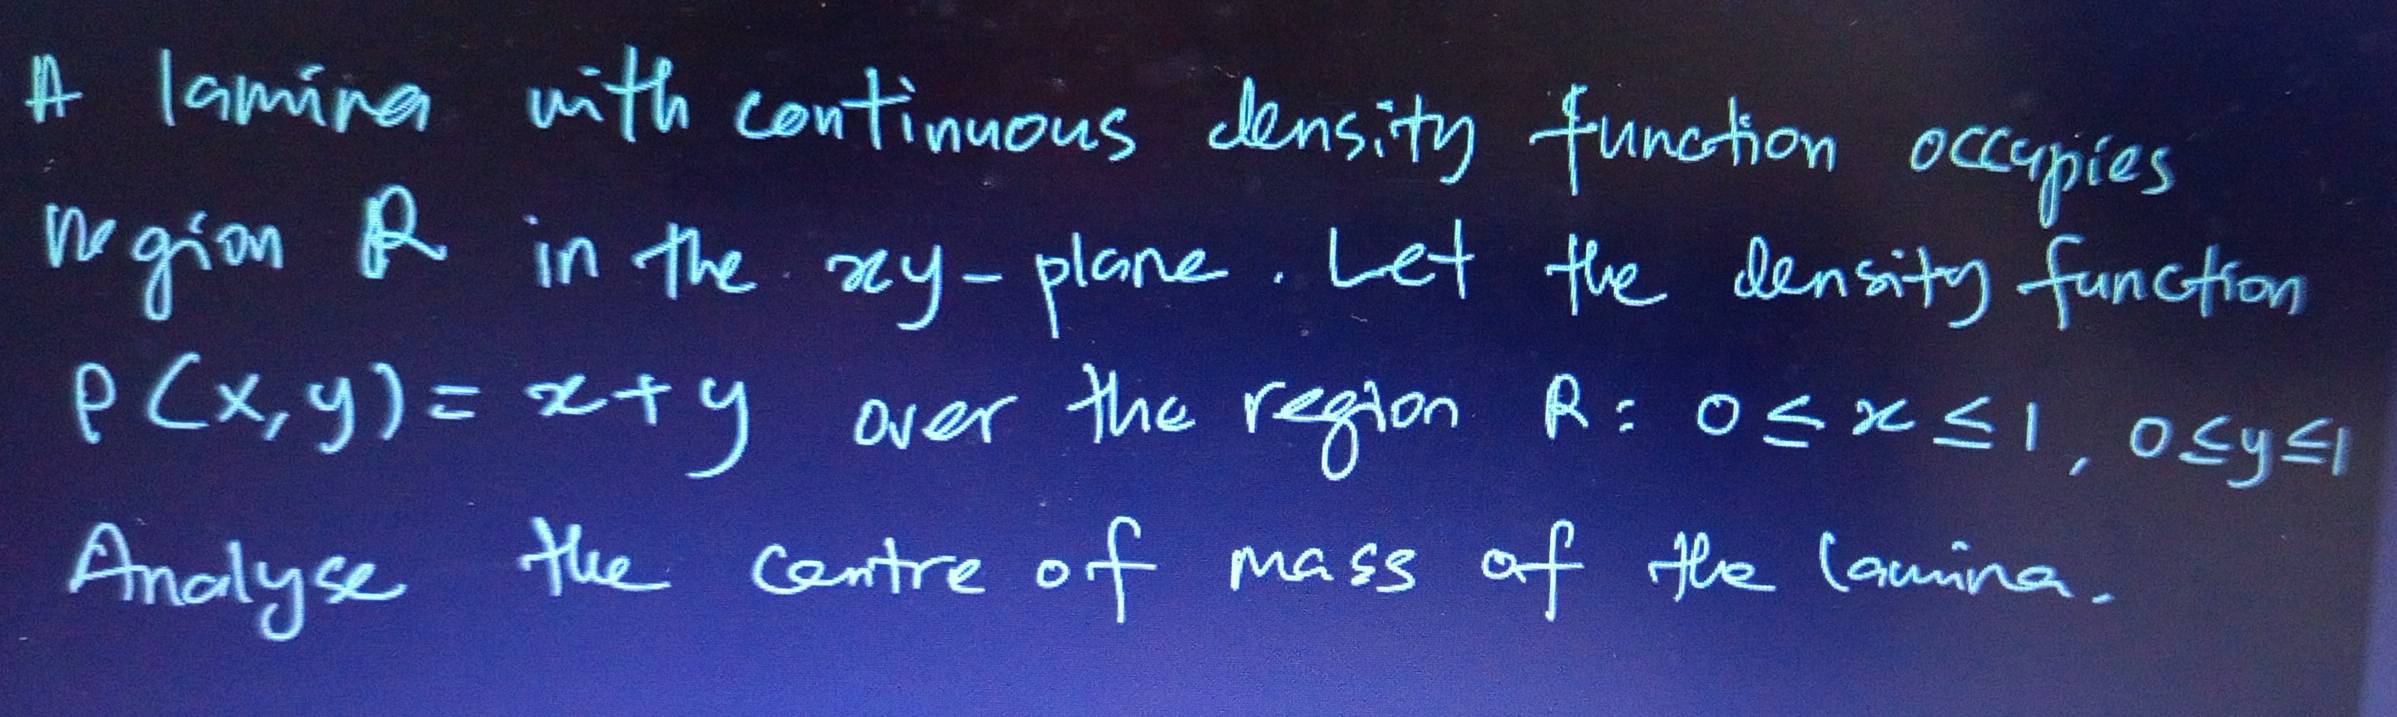 A lamina with continuous density function occupies
region R in the xy-plane. Let the density function
ρ(x,y) = x+y over the region R: 0≤x≤1, 0≤y≤1
Analyse the centre of mass of the lamina.